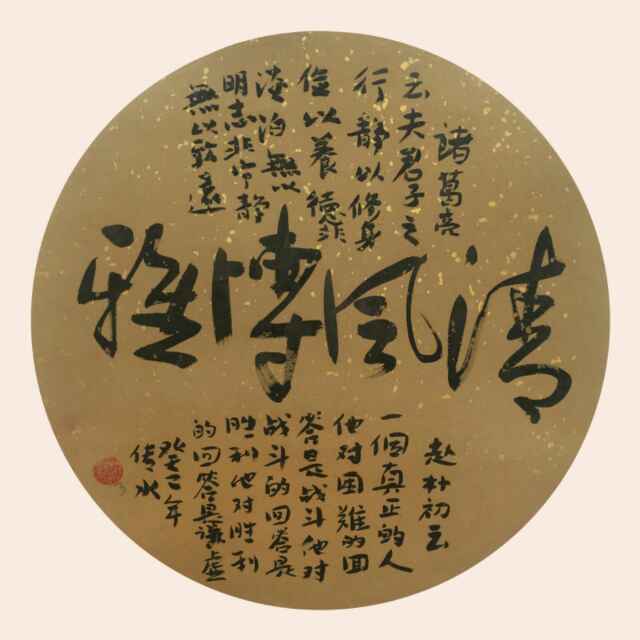 諸葛亮
云夫君子之
行静以修身
俭以養德非
淡泊無以
明志非宁静
無以致遠
清风博雅
赵朴初云
一個真正的人
他对困難的回
答是战斗他对
战斗的回答是
胜利他对胜利
的回答是谦虚
癸巳年
传水